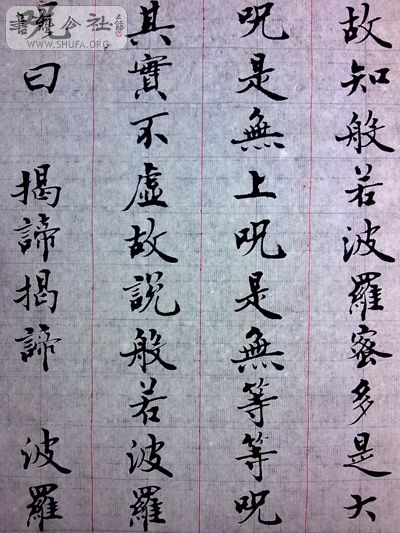 故知般若波羅蜜多是大
呪是無上呪是無等等呪
其實不虛故說般若波羅
呪曰 揭諦揭諦 波羅
書藝公社
WWW.SHUFA.ORG